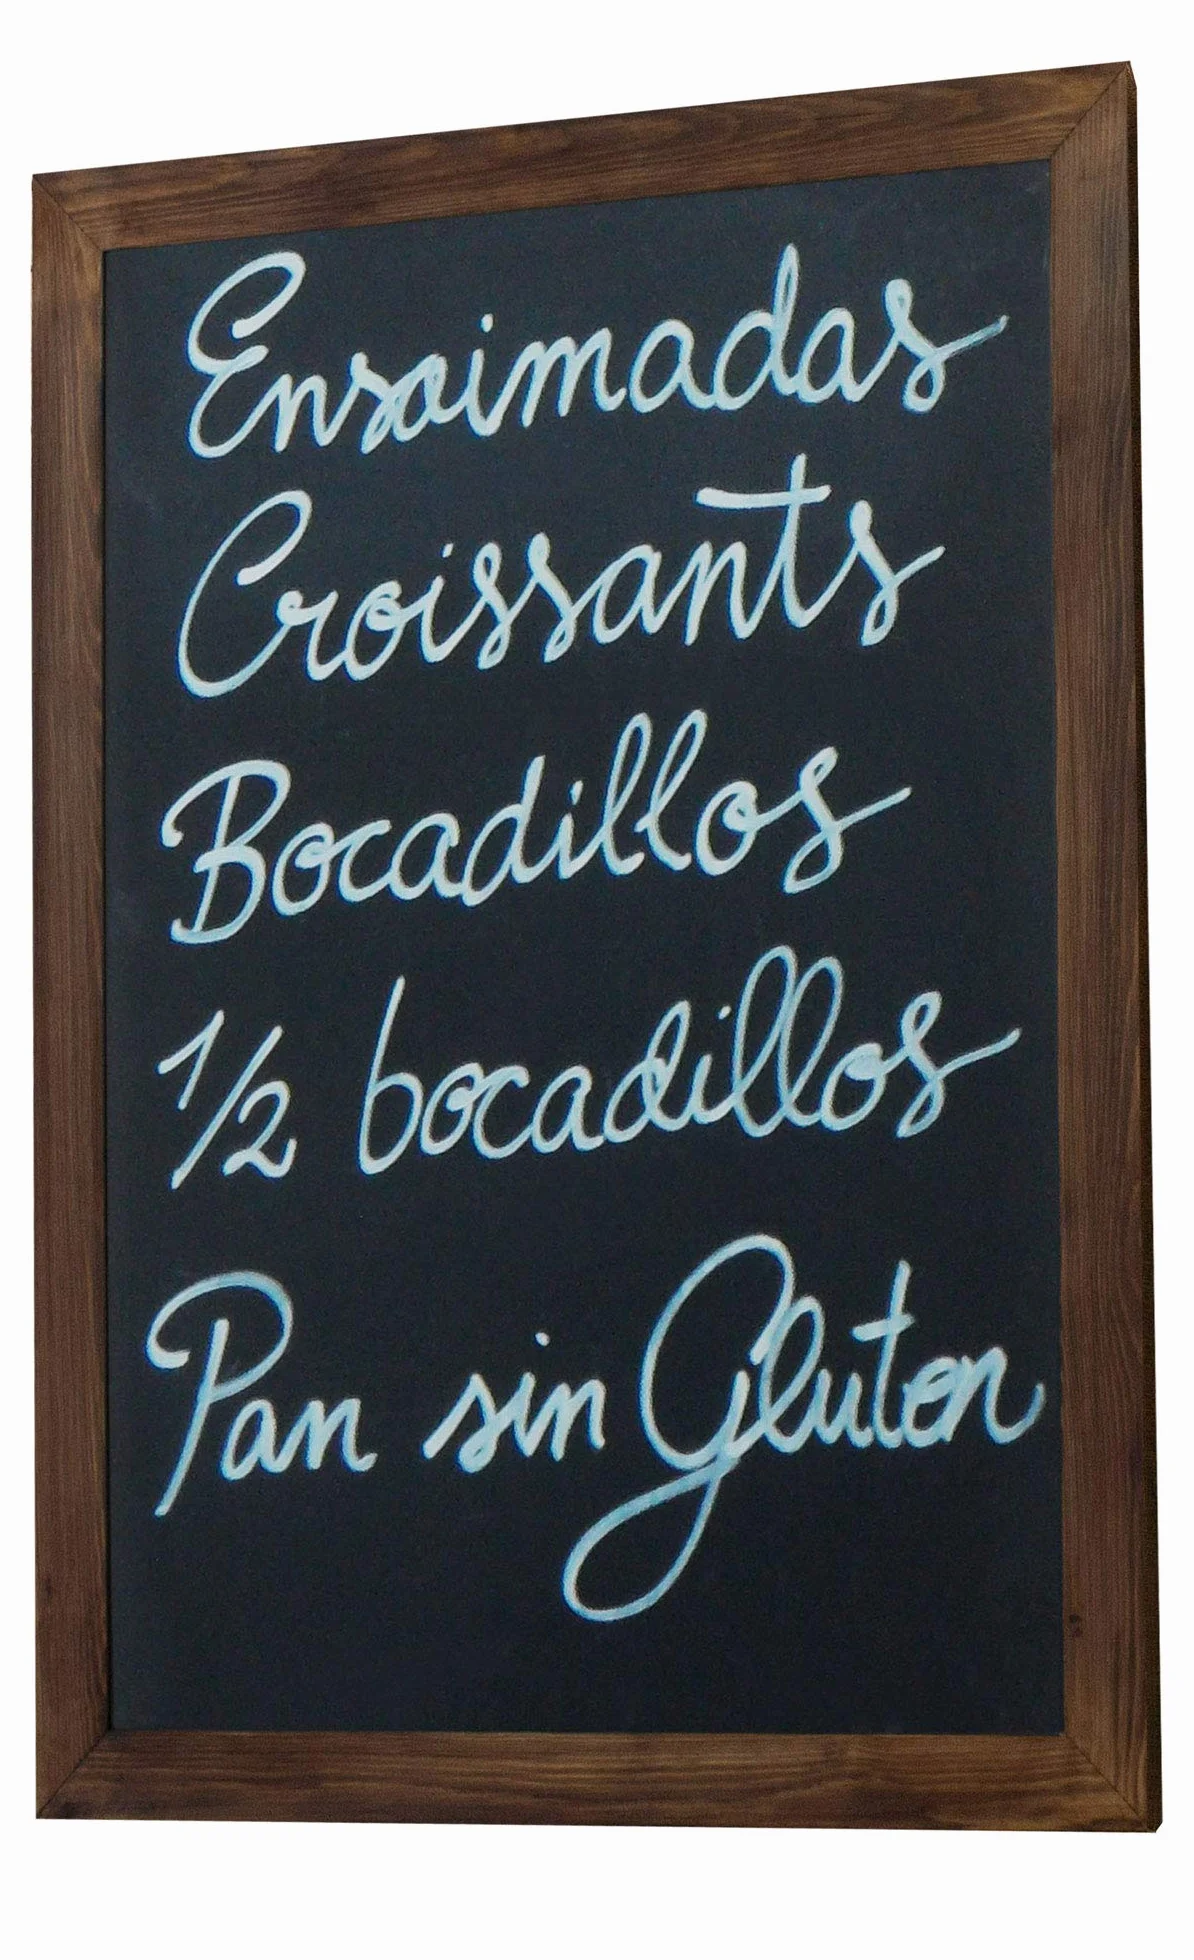 Ensaimadas
Croissants
Bocadillos
1/2 bocadillos
Pan sin Gluten